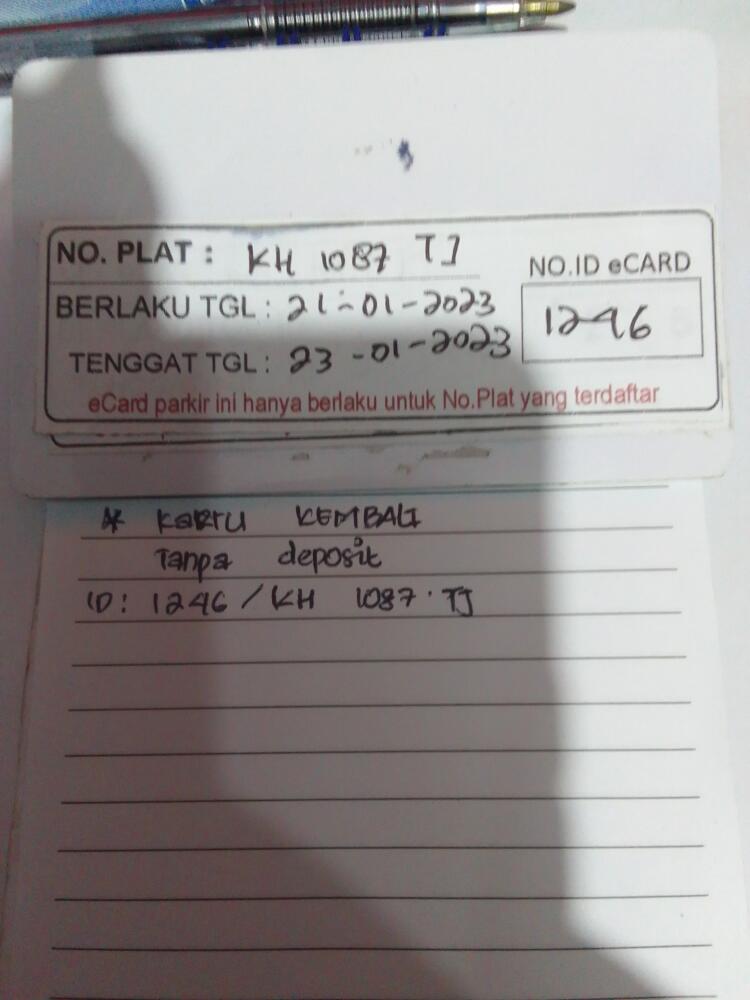 NO. PLAT : KH 1087 TJ
BERLAKU TGL : 21-01-2023
TENGGAT TGL : 23-01-2023
NO.ID eCARD
1246
eCard parkir ini hanya berlaku untuk No.Plat yang terdaftar
* KARTU KEMBALI
Tanpa deposit
ID: 1246 / KH 1087 TJ